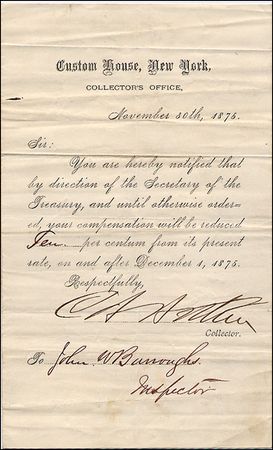 Custom House, New York,
COLLECTOR'S OFFICE,
November 30th, 1875.
Sir:
You are hereby notified that
by direction of the Secretary of the
Treasury, and until otherwise order=
ed, your compensation will be reduced
Ten per centum from its present
rate, on and after December 1, 1875.
Respectfully,
C A Arthur
Collector.
To John W Burroughs.
Inspector